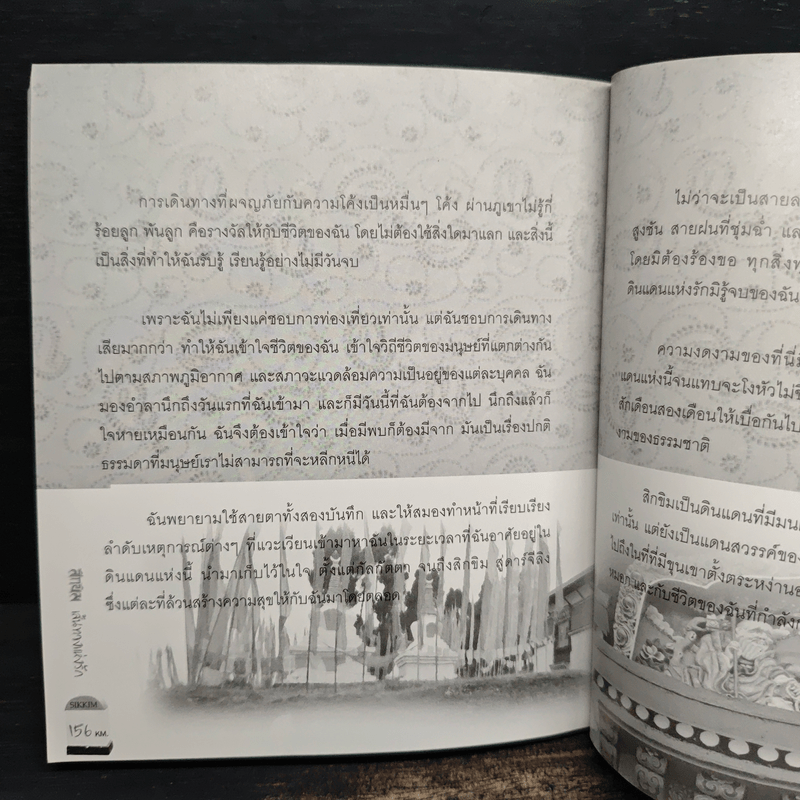 การเดินทางที่ผจญภัยกับความโค้งเป็นหมื่นๆ โค้ง ผ่านภูเขาไม่รู้กี่
ร้อยลูก พันลูก คือรางวัลให้กับชีวิตของฉัน โดยไม่ต้องใช้สิ่งใดมาแลก และสิ่งนี้
เป็นสิ่งที่ทำให้ฉันรับรู้ เรียนรู้อย่างไม่มีวันจบ
เพราะฉันไม่เพียงแค่ชอบการท่องเที่ยวเท่านั้น แต่ฉันชอบการเดินทาง
เสียมากกว่า ทำให้ฉันเข้าใจชีวิตของฉัน เข้าใจวิถีชีวิตของมนุษย์ที่แตกต่างกัน
ไปตามสภาพภูมิอากาศ และสภาวะแวดล้อมความเป็นอยู่ของแต่ละบุคคล ฉัน
มองอำลานึกถึงวันแรกที่ฉันเข้ามา และก็มีวันนี้ที่ฉันต้องจากไป นึกถึงแล้วก็
ใจหายเหมือนกัน ฉันจึงต้องเข้าใจว่า เมื่อมีพบก็ต้องมีจาก มันเป็นเรื่องปกติ
ธรรมดาที่มนุษย์เราไม่สามารถที่จะหลีกหนีได้
ฉันพยายามใช้สายตาทั้งสองบันทึก และให้สมองทำหน้าที่เรียบเรียง
ลำดับเหตุการณ์ต่างๆ ที่แวะเวียนเข้ามาหาฉันในระยะเวลาที่ฉันอาศัยอยู่ใน
ดินแดนแห่งนี้ นำมาเก็บไว้ในใจ ตั้งแต่กัลกัตตา จนถึงสิกขิม สู่ดาร์จีลิง
ซึ่งแต่ละที่ล้วนสร้างความสุขให้กับฉันมาโดยตลอด
สิกขิม เส้นทางแห่งรัก
SIKKIM
156 KM.
ไม่ว่าจะเป็นสายล
สูงชัน สายฝนที่ชุ่มฉ่ำ แล
โดยมิต้องร้องขอ ทุกสิ่งท
ดินแดนแห่งรักมิรู้จบของฉัน
ความงดงามของที่นี่มี
แดนแห่งนี้จนแทบจะโงหัวไม่ขึ
สักเดือนสองเดือนให้เบื่อกันไป
งามของธรรมชาติ
สิกขิมเป็นดินแดนที่มีมน
เท่านั้น แต่ยังเป็นแดนสวรรค์ของ
ไปถึงในที่ที่มีขุนเขาตั้งตระหง่านอ
หมอก และกับชีวิตของฉันที่กำลัง